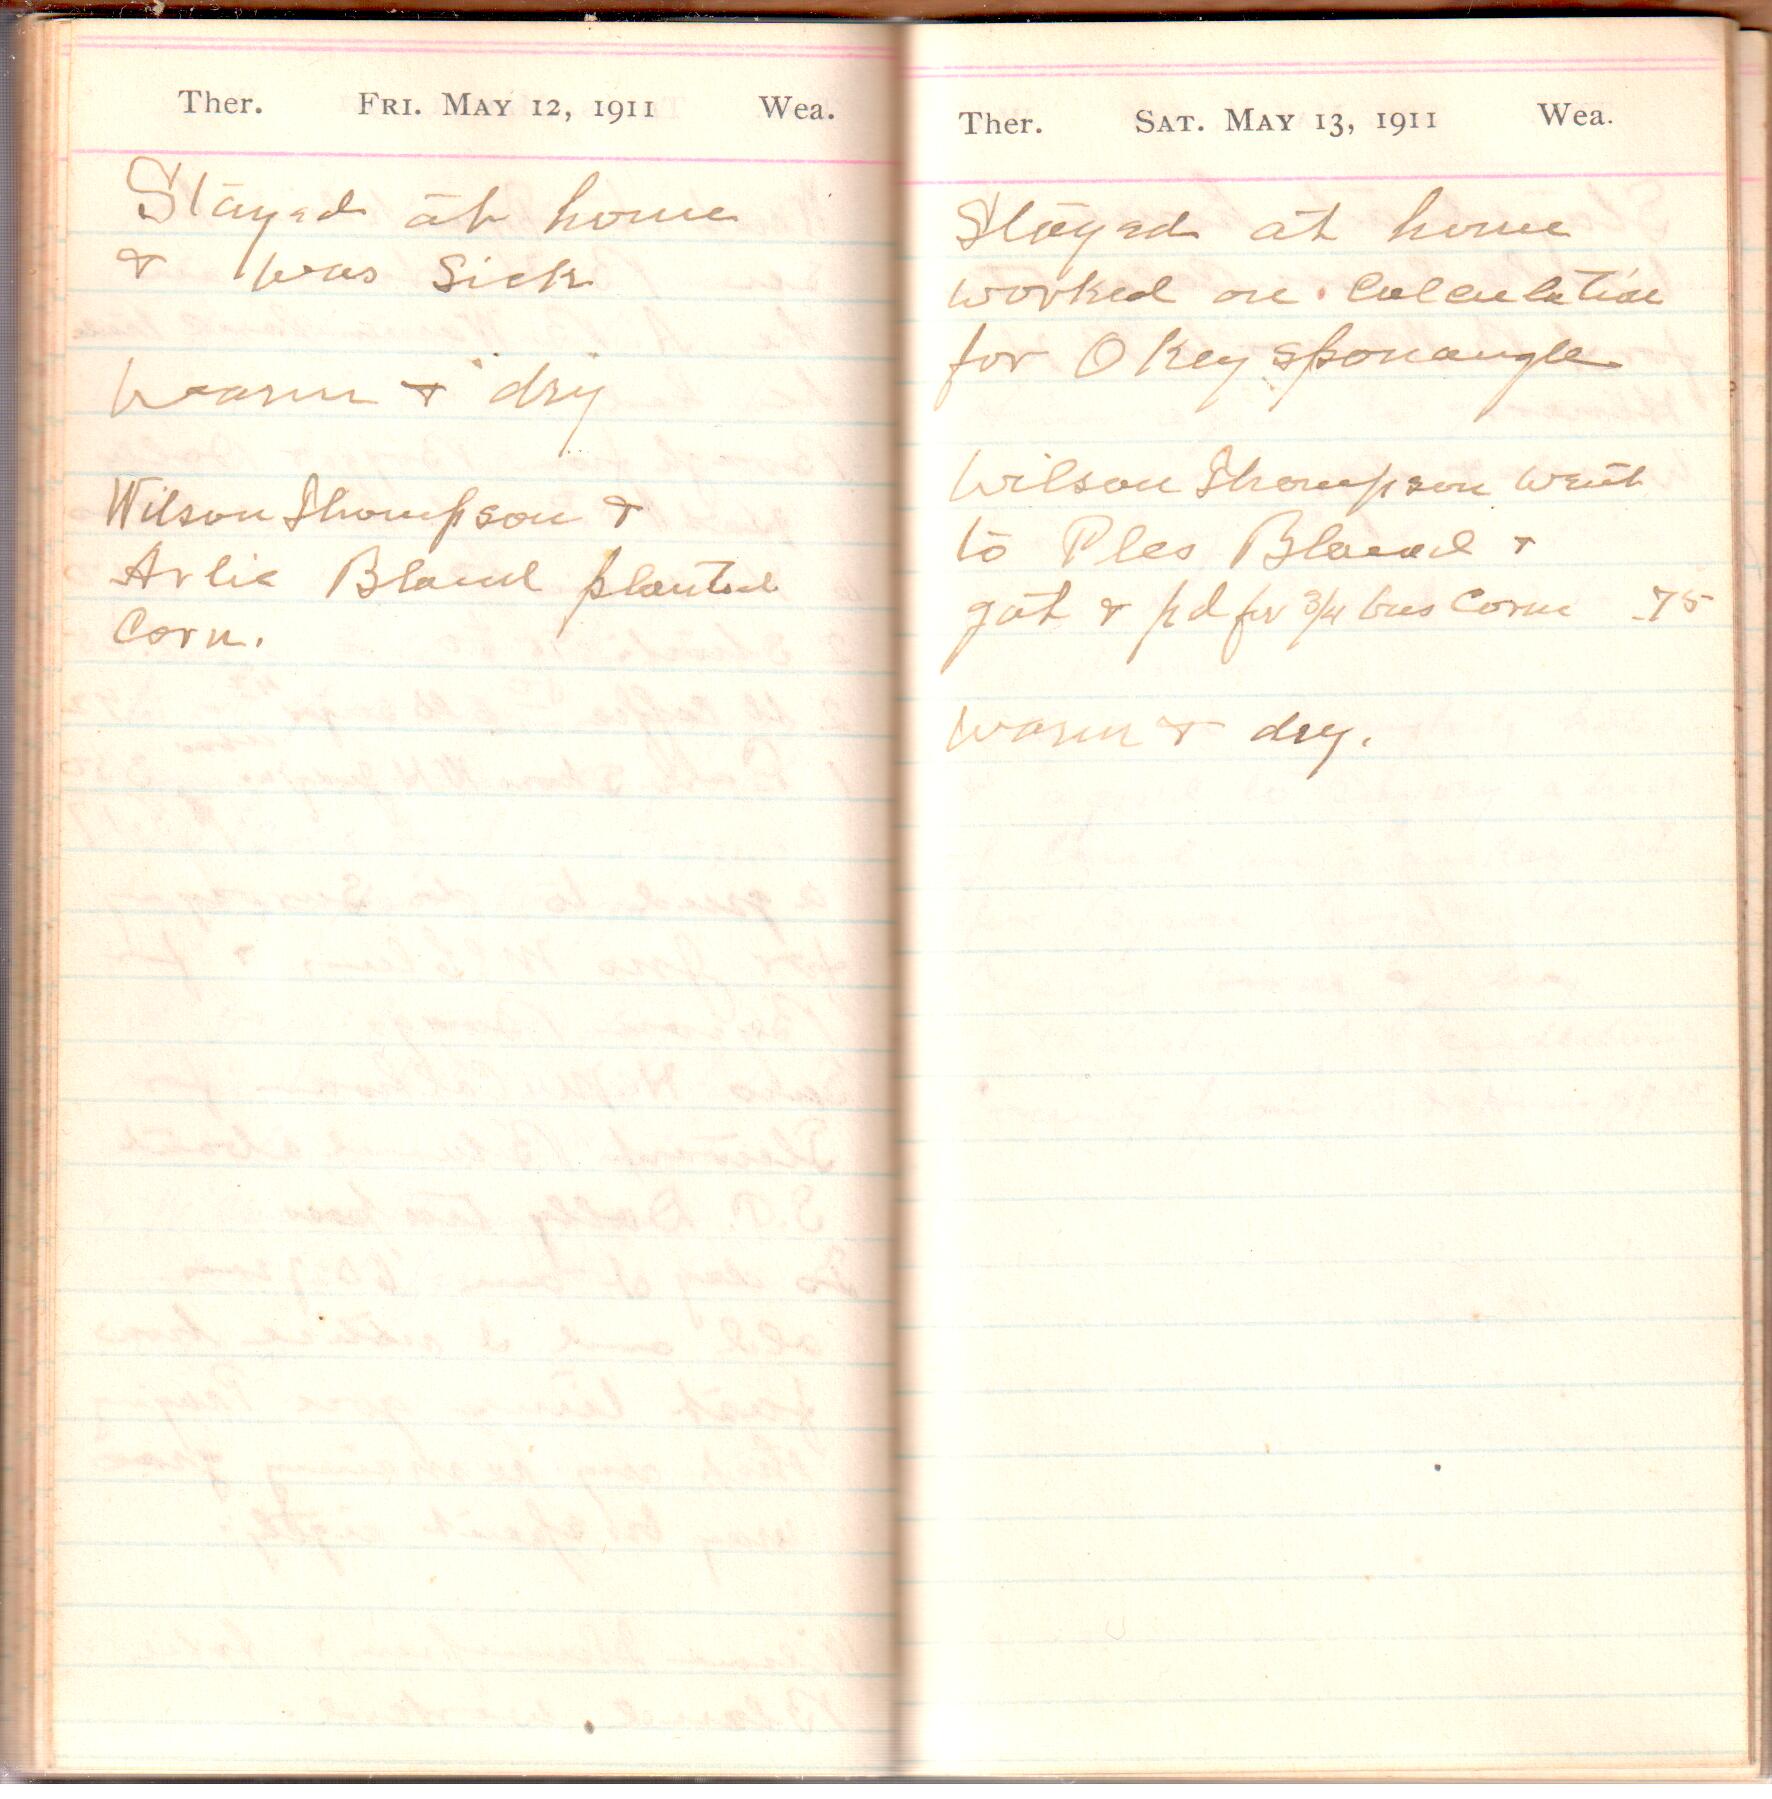 Ther. Fri. May 12, 1911 Wea.
Stayed at home
& was sick
Warm & dry
Wilson Thompson &
Arlie Bland planted
Corn.
Ther. Sat. May 13, 1911 Wea.
Stayed at home
worked on Calculation
for Okey Sponaugle
Wilson Thompson went
to Ples Bland &
got & pd for 3/4 bus Corn .75
Warm & dry.